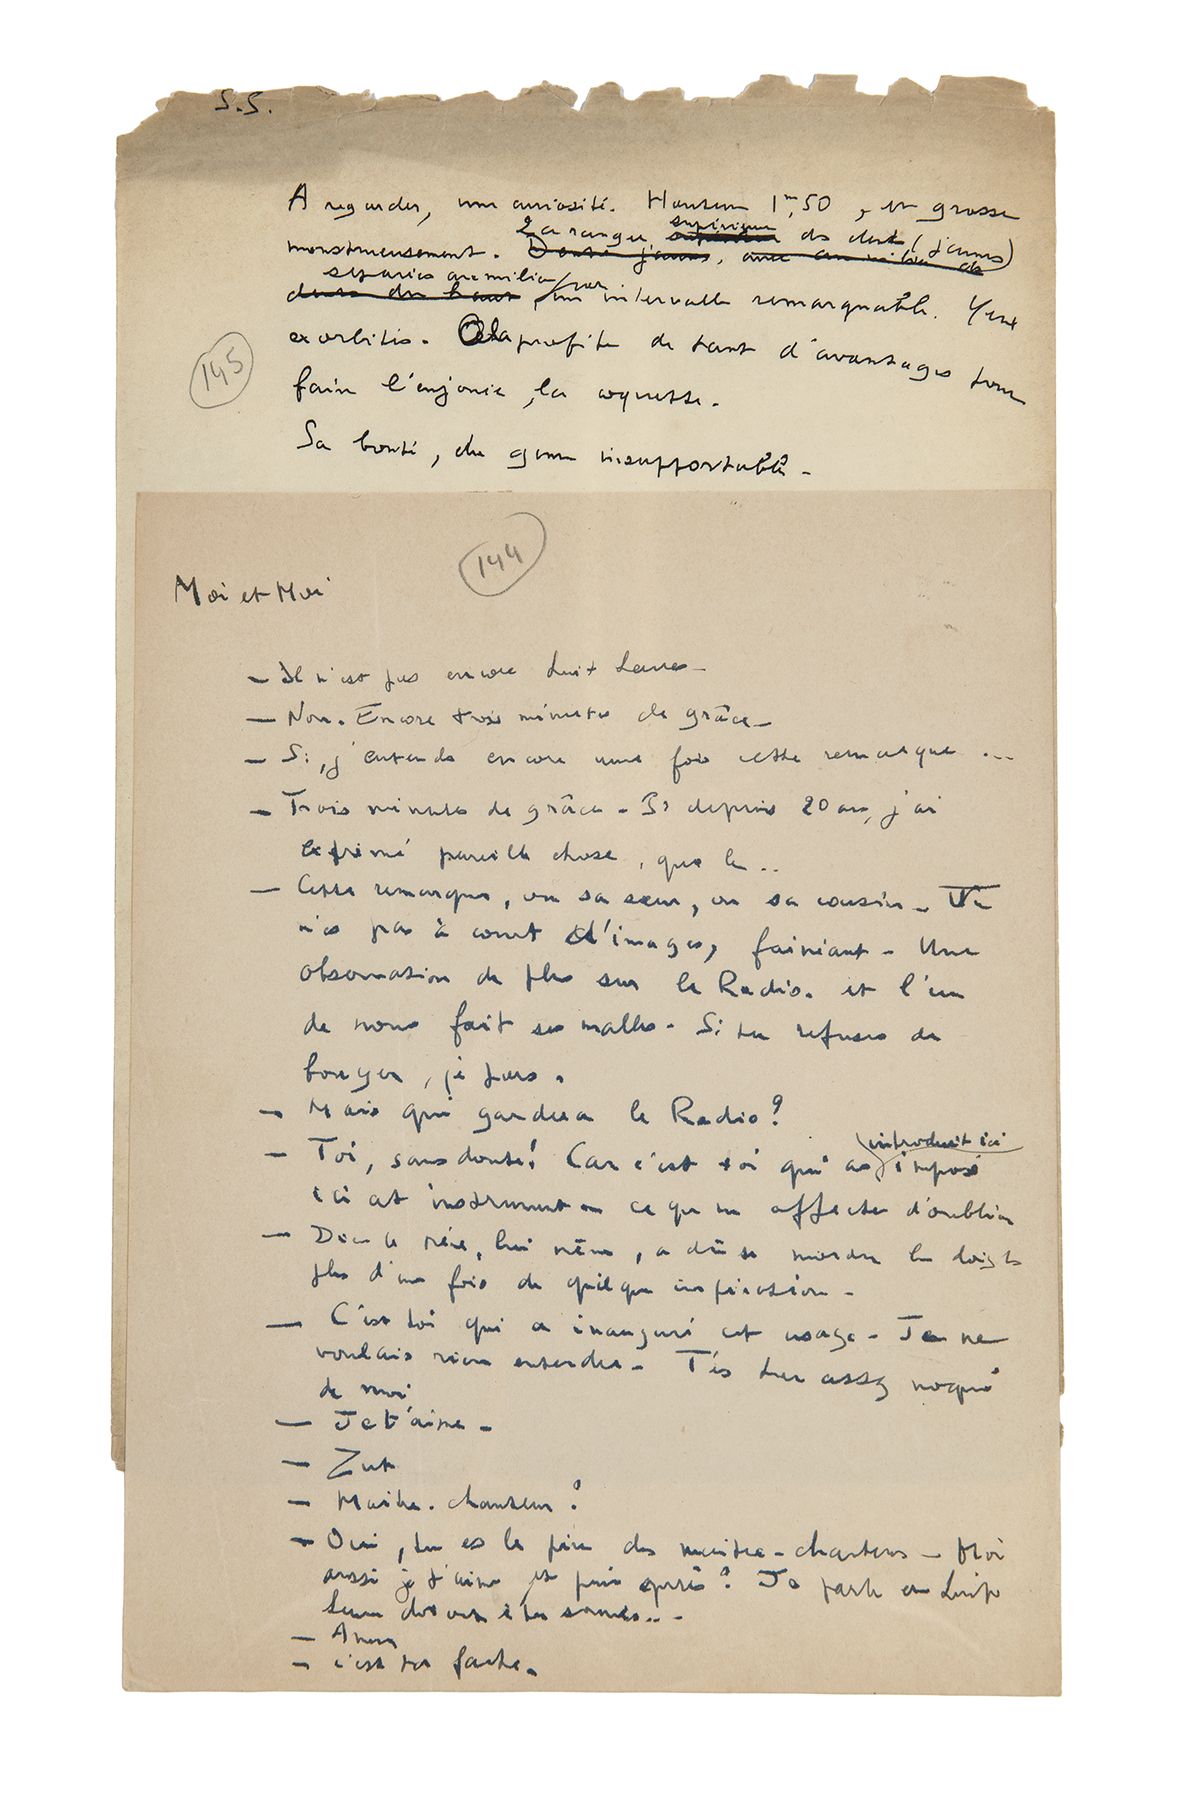 S.S.
A regarder, une curiosité. Hauteur 1m,50, et grosse
La rangée supérieure des dents (jaunes)
monstrueusement. Dents jaunes, avec au milieu des
séparées au milieu par
dents du haut, un intervalle remarquable. Yeux
exorbités. Ola profite de tant d'avantages pour
145
faire l'enjouée, la coquette.
Sa bonté, du genre insupportable.
144
Moi et Moi
– Il n'est pas encore huit heures –
– Non. Encore trois minutes de grâce –
– Si, j'entends encore une fois cette remarque ...
– Trois minutes de grâce – Si depuis 20 ans, j'ai
exprimé pareille chose, que le ..
– Cette remarque, ou sa sœur, ou sa cousine – Tu
n'es pas à court d'images, fainéant – Une
observation de plus sur la Radio. et l'un
de nous fait ses malles – Si tu refuses de
bouger, je pars.
– Mais qui gardera la Radio ?
– Toi, sans doute ! Car c'est toi qui as imposé
introduit ici
ici cet instrument ce que tu affectes d'oublier
– Dieu le père, lui même, a dû se mordre les doigts
plus d'une fois de quelque inspiration –
– C'est toi qui a inauguré cet usage – Je ne
voulais rien entendre – T'es tu assez moqué
de moi
– Je t'aime –
– Zut
– Maître-chanteur ?
– Oui, tu es le pire des maitre-chanteurs – Moi
aussi je t'aime et puis après ? Je parle en huit
heures
– c'est ta faute.